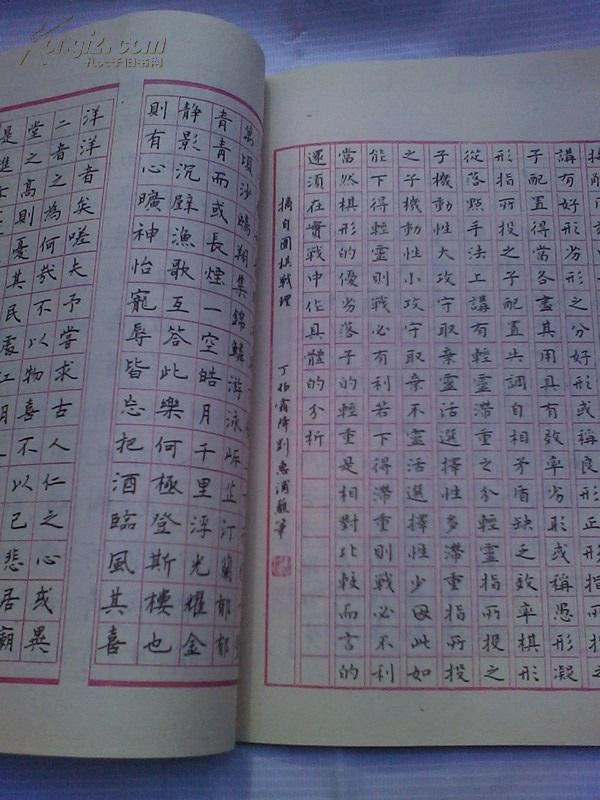 講有好形劣形之分好形或稱良形正形指所投之
子配置得當各盡其用具有效率劣形或稱愚形凝
形指所投之子配置失調自相矛盾缺乏效率棋形
從落點手法上講有輕靈滯重之分輕靈指所投之
子機動性大攻守取棄靈活選擇性多滯重指所投
之子機動性小攻守取棄不靈活選擇性少因此如
能下得輕靈則戰必有利若下得滯重則戰必不利
當然棋形的優劣落子的輕重是相對比較而言的
還須在實戰中作具體的分析
摘自圍棋戰理 丁卯霜降劉惠浦
萬頃沙鷗翔集錦鱗游泳岸芷汀蘭郁郁
青青而或長煙一空皓月千里浮光耀金
靜影沉璧漁歌互答此樂何極登斯樓也
則有心曠神怡寵辱皆忘把酒臨風其喜
洋洋者矣嗟夫予嘗求古人仁之心或異
二者之為何哉不以物喜不以己悲居廟
堂之高則憂其民處江
是進
Kongfz.com
孔夫子旧书网